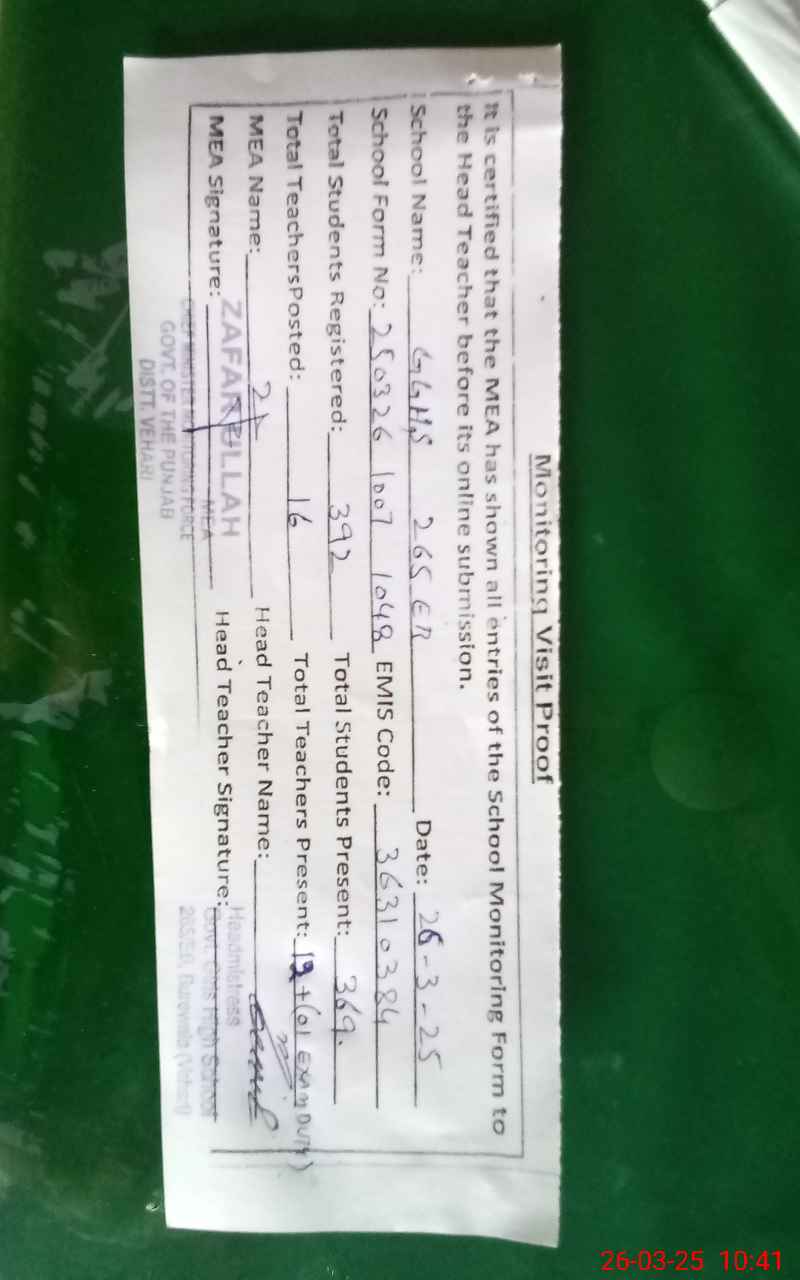 Monitoring Visit Proof
It is certified that the MEA has shown all entries of the School Monitoring Form to
the Head Teacher before its online submission.
School Name: GGHS 265 ER Date: 26-3-25
School Form No: 250326 1007 1048 EMIS Code: 36310384
Total Students Registered: 392 Total Students Present: 369.
Total TeachersPosted: 16 Total Teachers Present: 12+(01 EXAM DUTY)
MEA Name: Head Teacher Name:
ZAFARULLAH
MEA Signature: Head Teacher Signature:
MEA
CHIEF MINISTER MONITORING FORCE
GOVT. OF THE PUNJAB
DISTT. VEHARI
Headmistress
Govt. Girls High School
265/EB, Burewala (Vehari)
26-03-25 10:41